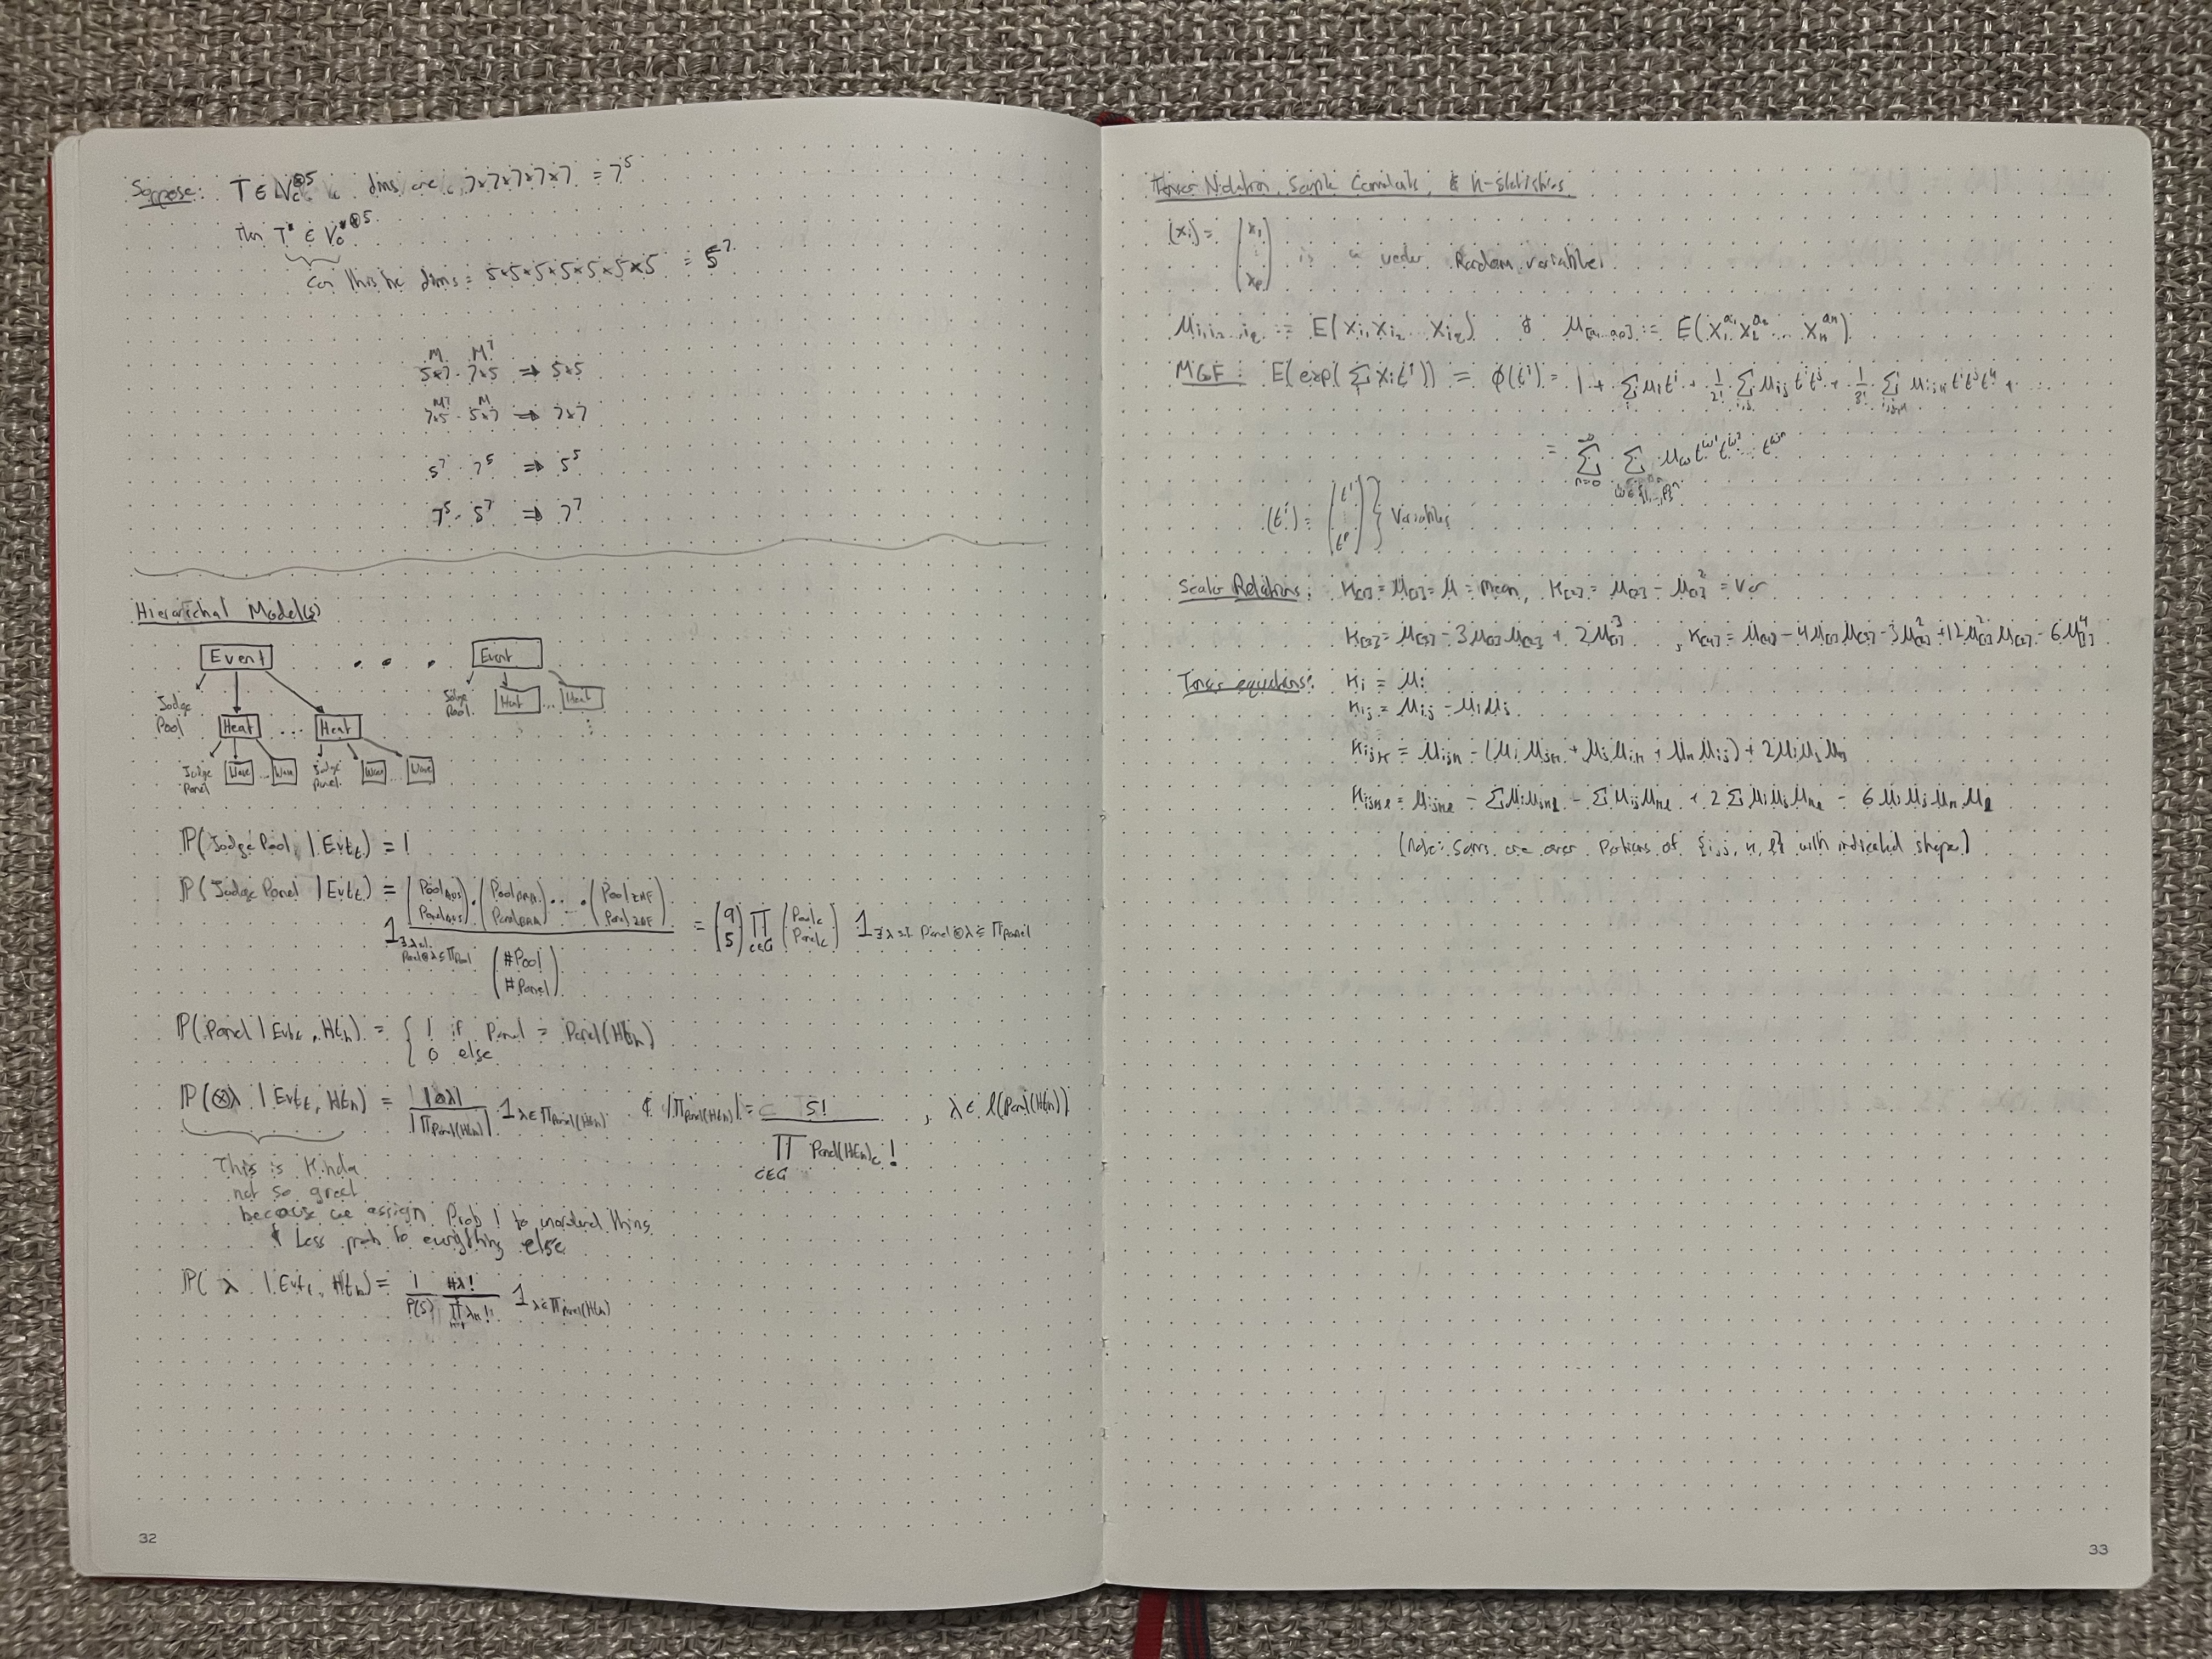 Suppose: T ∈ V_c^{⊗5} dims are 7×7×7×7×7 = 7^5
then T* ∈ V_0^{*⊗5}
can this be dims = 5×5×5×5×5×5×5 = 5^7
M, M^T
5×7 7×5 ⇒ 5×5
M^T M
7×5 5×7 ⇒ 7×7
5^7 7^5 ⇒ 5^5
7^5 5^7 ⇒ 7^7
Hierarichal Model(s)
Event ... Event
Judge Pool Judge Pool
Heat ... Heat Heat ... Heat
Judge Panel Judge Panel
Wave ... Wave Wave Wave
P(Judge Pool | Evt_t) = 1
P(Judge Panel | Evt_t) = (Pool_AUS Panel_AUS)(Pool_BRA Panel_BRA)...(Pool_ZAF Panel_ZAF) / (#Pool #Panel) 1_{∃λ: Panel⊗λ ≤ Π_Pool} = (9 5) ∏_{c∈C} (Pool_c Panel_c) 1_{∃λ: Panel⊗λ ≤ Π_Panel}
P(Panel | Evt_t, Ht_h) = { 1 if Panel = Panel(Ht_h)
0 else
P(⊗λ | Evt_t, Ht_h) = |⊗λ| / |Π_Panel(Ht_h)| 1_{λ∈Π_Panel(Ht_h)} & |Π_Panel(Ht_h)| = 5! / ∏_{c∈C} Panel(Ht_h)_c! , λ ∈ l(Panel(Ht_h))
This is kinda
not so great
because we assign Prob 1 to unordered things
& Less prob to everything else
P(λ | Evt_t, Ht_h) = 1/P(5) #λ!/∏λ_i! 1_{λ∈Π_Panel(Ht_h)}
32
Tensor Notation, Sample Cumulants, & k-statistics
(x_i) = (x_1 ⋮ x_p) is a vector Random variable
μ_{i_1 i_2...i_l} := E(x_{i_1} x_{i_2} ... x_{i_l}) & μ_{[a_1...a_n]} := E(x_1^{a_1} x_2^{a_2} ... x_n^{a_n})
MGF: E(exp(Σ x_i t^i)) = φ(t^i) = 1 + Σ_i μ_i t^i + 1/2! Σ_{i,j} μ_{ij} t^i t^j + 1/3! Σ_{i,j,k} μ_{ijk} t^i t^j t^k + ...
= Σ_{n=0}^∞ Σ_{ω∈{1,...,p}^n} μ_ω t^{ω_1} t^{ω_2} ... t^{ω_n}
(t^i) = (t^1 ⋮ t^p) } Variables
Scalar Relations: κ_{[1]} = μ_{[1]} = μ = mean, κ_{[2]} = μ_{[2]} - μ_{[1]}^2 = Var
κ_{[3]} = μ_{[3]} - 3μ_{[2]}μ_{[1]} + 2μ_{[1]}^3 , κ_{[4]} = μ_{[4]} - 4μ_{[1]}μ_{[3]} - 3μ_{[2]}^2 + 12μ_{[1]}^2μ_{[2]} - 6μ_{[1]}^4
Tensor equations: κ_i = μ_i
κ_{ij} = μ_{ij} - μ_i μ_j
κ_{ijk} = μ_{ijk} - (μ_i μ_{jk} + μ_j μ_{ik} + μ_k μ_{ij}) + 2μ_i μ_j μ_k
κ_{ijkl} = μ_{ijkl} - Σ μ_i μ_{jkl} - Σ μ_{ij} μ_{kl} + 2 Σ μ_i μ_j μ_{kl} - 6 μ_i μ_j μ_k μ_l
(Note: Sums are over Partitions of {i, j, k, l} with indicated shape)
33